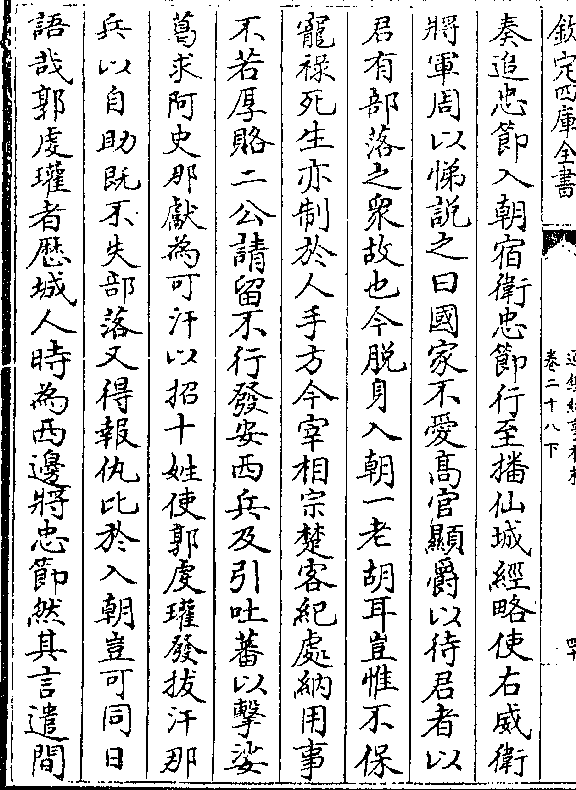 欽定四庫全書
卷二十八下
奏追忠節入朝宿衛忠節行至播仙城經略使右威衛
將軍周以悌說之曰國家不愛髙官顯爵以待君者以
君有部落之衆故也今脱身入朝一老胡耳豈惟不保
寵禄死生亦制於人手方今宰相宗楚客紀處納用事
不若厚賂二公請留不行發安西兵及引吐蕃以擊娑
葛求阿史那獻為可汗以招十姓使郭虔瓘發拔汗那
兵以自助既不失部落又得報仇比於入朝豈可同日
語哉郭虔瓘者歴城人時為西邊將忠節然其言遣間